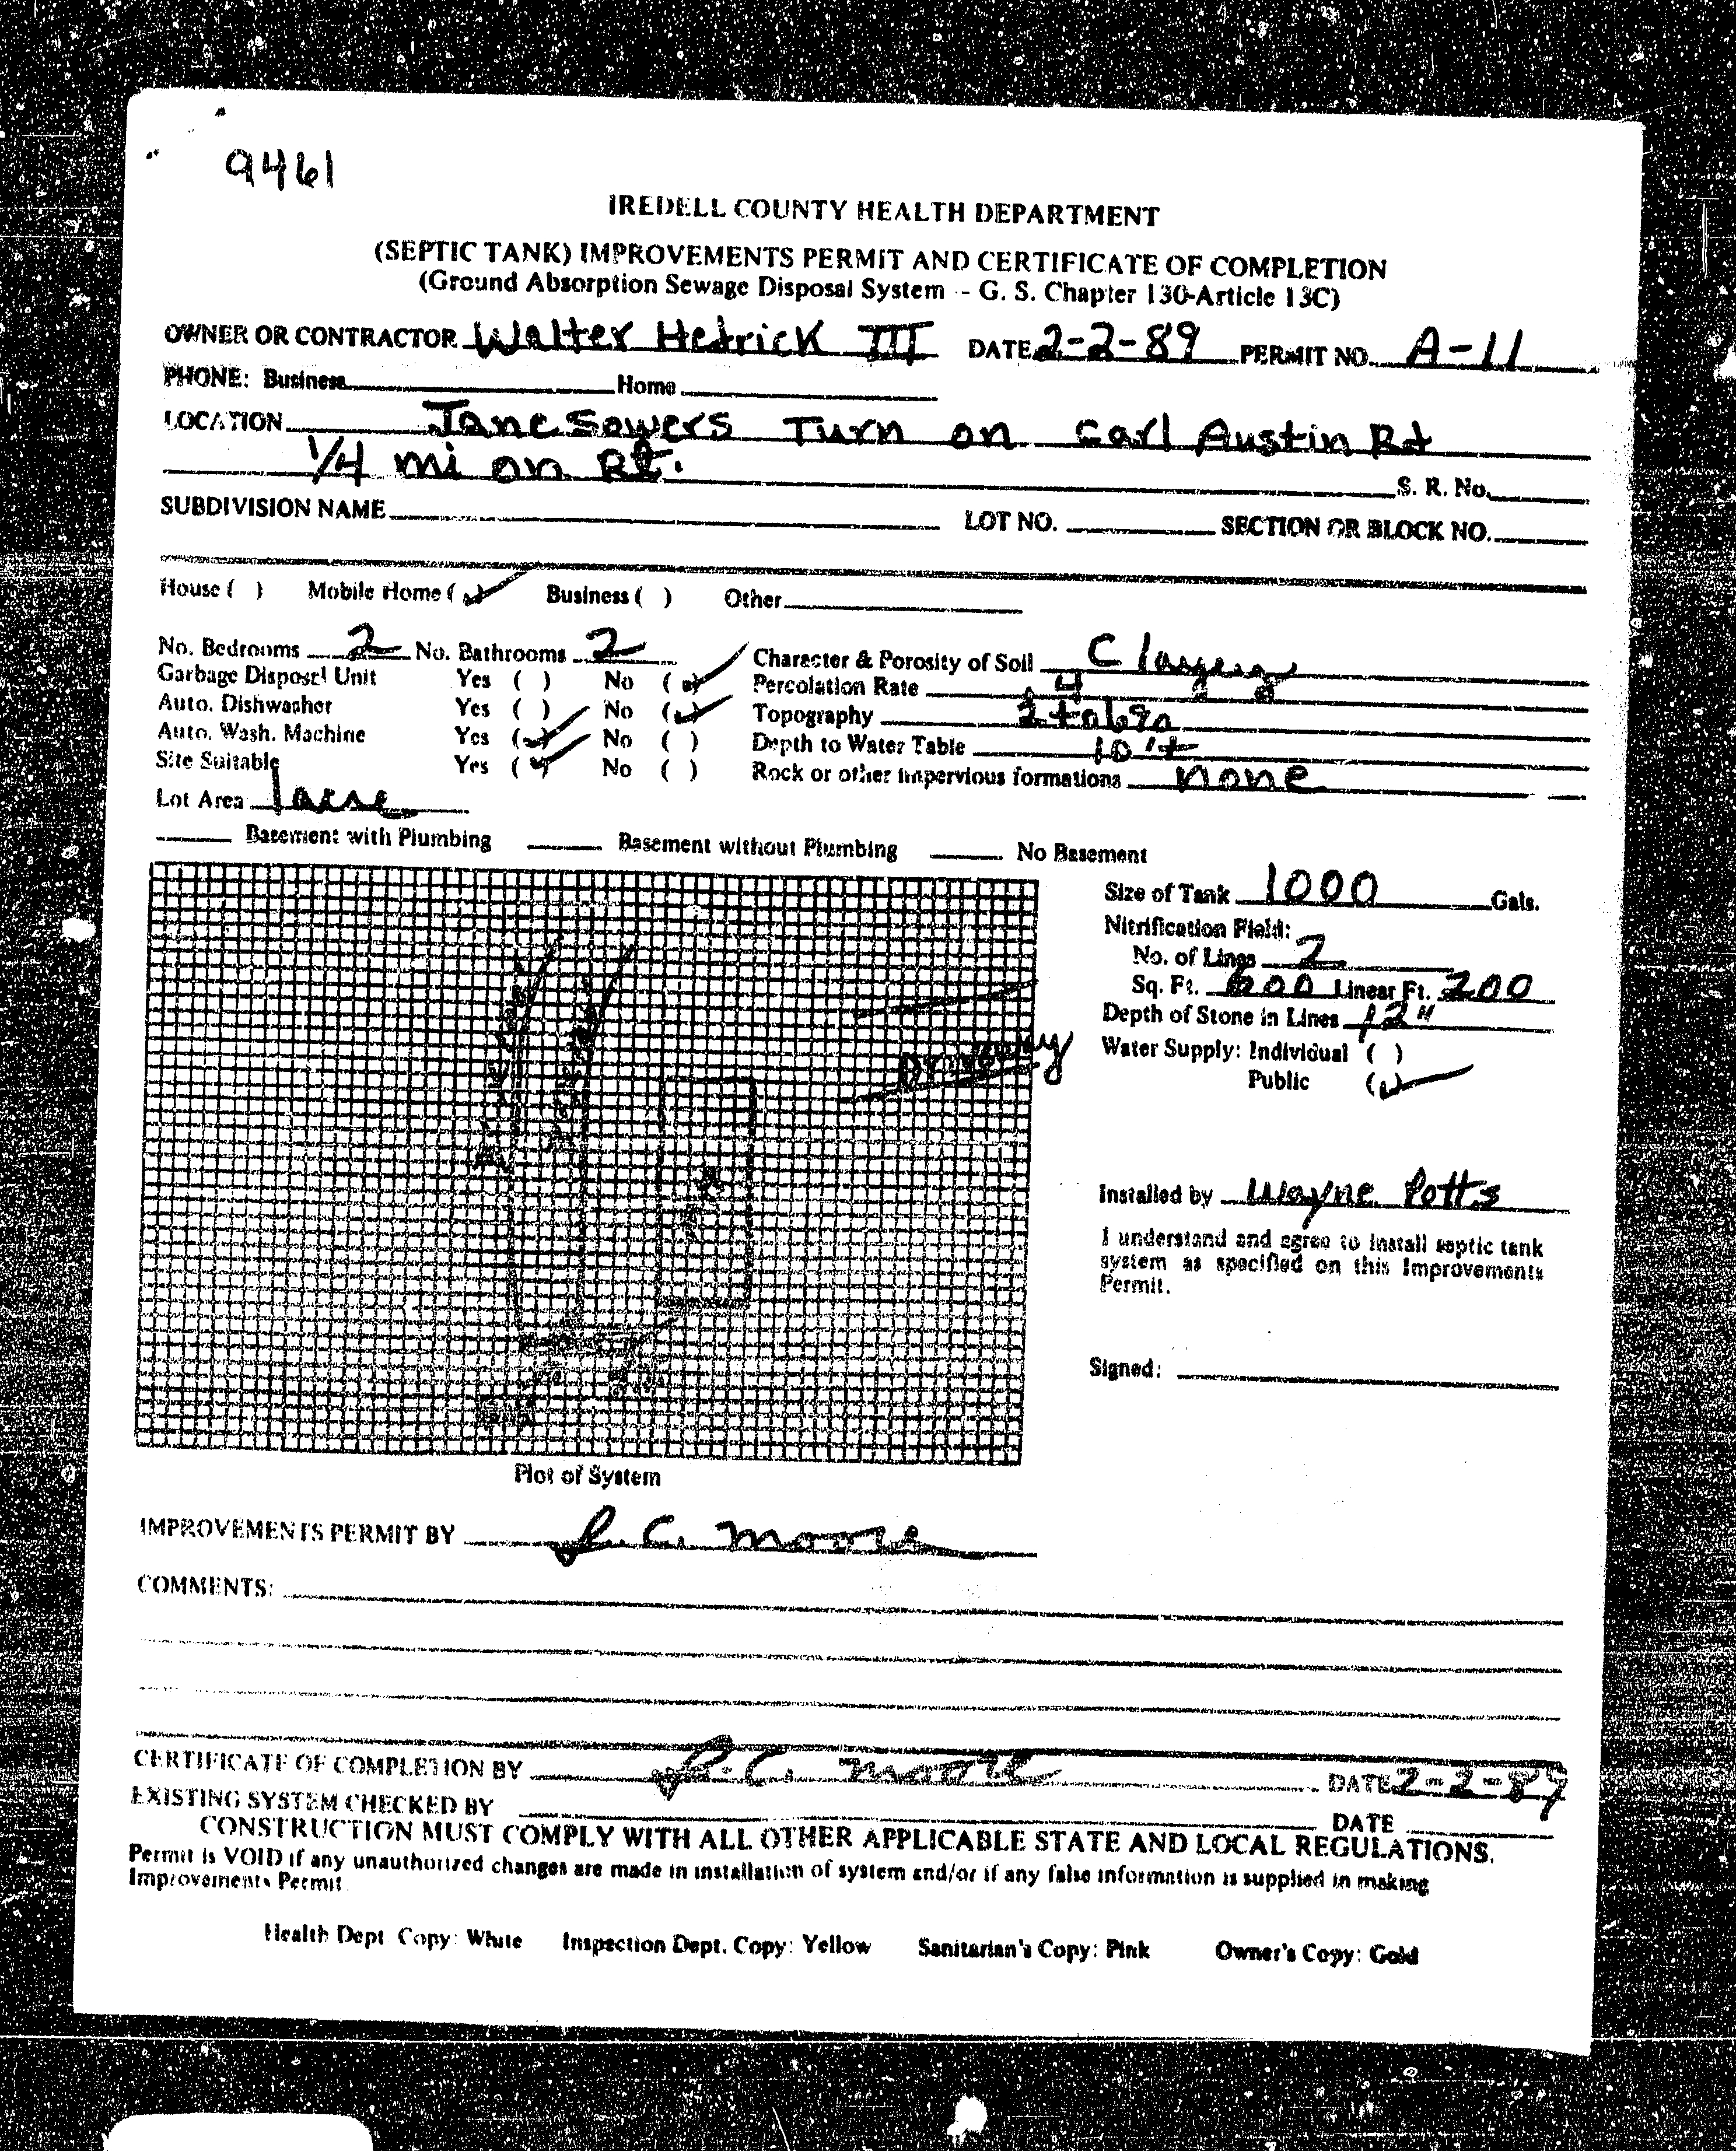 9461
IREDELL COUNTY HEALTH DEPARTMENT
(SEPTIC TANK) IMPROVEMENTS PERMIT AND CERTIFICATE OF COMPLETION
(Ground Absorption Sewage Disposal System -- G. S. Chapter 130-Article 13C)
OWNER OR CONTRACTOR Walter Hetrick III DATE 2-2-89 PERMIT NO. A-11
PHONE: Business Home
LOCATION Jane Sowers Turn on Carl Austin Rd
1/4 mi on Rt. S. R. No.
SUBDIVISION NAME LOT NO. SECTION OR BLOCK NO.
House ( ) Mobile Home (✓) Business ( ) Other
No. Bedrooms 2 No. Bathrooms 2 Character & Porosity of Soil Clayey
Garbage Disposal Unit Yes ( ) No (✓) Percolation Rate .4
Auto. Dishwasher Yes ( ) No (✓) Topography 2 to 6%
Auto. Wash. Machine Yes (✓) No ( ) Depth to Water Table 10'+
Site Suitable Yes (✓) No ( ) Rock or other impervious formations none
Lot Area 1 acre
Basement with Plumbing Basement without Plumbing No Basement
Size of Tank 1000 Gals.
Nitrification Field:
No. of Lines 2
Sq. Ft. 600 Linear Ft. 200
Depth of Stone in Lines 12"
Driveway
Water Supply: Individual ( )
Public (✓)
Installed by Wayne Potts
I understand and agree to install septic tank
system as specified on this Improvements
Permit.
Signed:
Plot of System
IMPROVEMENTS PERMIT BY L. C. Moore
COMMENTS:
CERTIFICATE OF COMPLETION BY L. C. Moore DATE 2-2-89
EXISTING SYSTEM CHECKED BY DATE
CONSTRUCTION MUST COMPLY WITH ALL OTHER APPLICABLE STATE AND LOCAL REGULATIONS.
Permit is VOID if any unauthorized changes are made in installation of system and/or if any false information is supplied in making
Improvements Permit.
Health Dept. Copy: White Inspection Dept. Copy: Yellow Sanitarian's Copy: Pink Owner's Copy: Gold